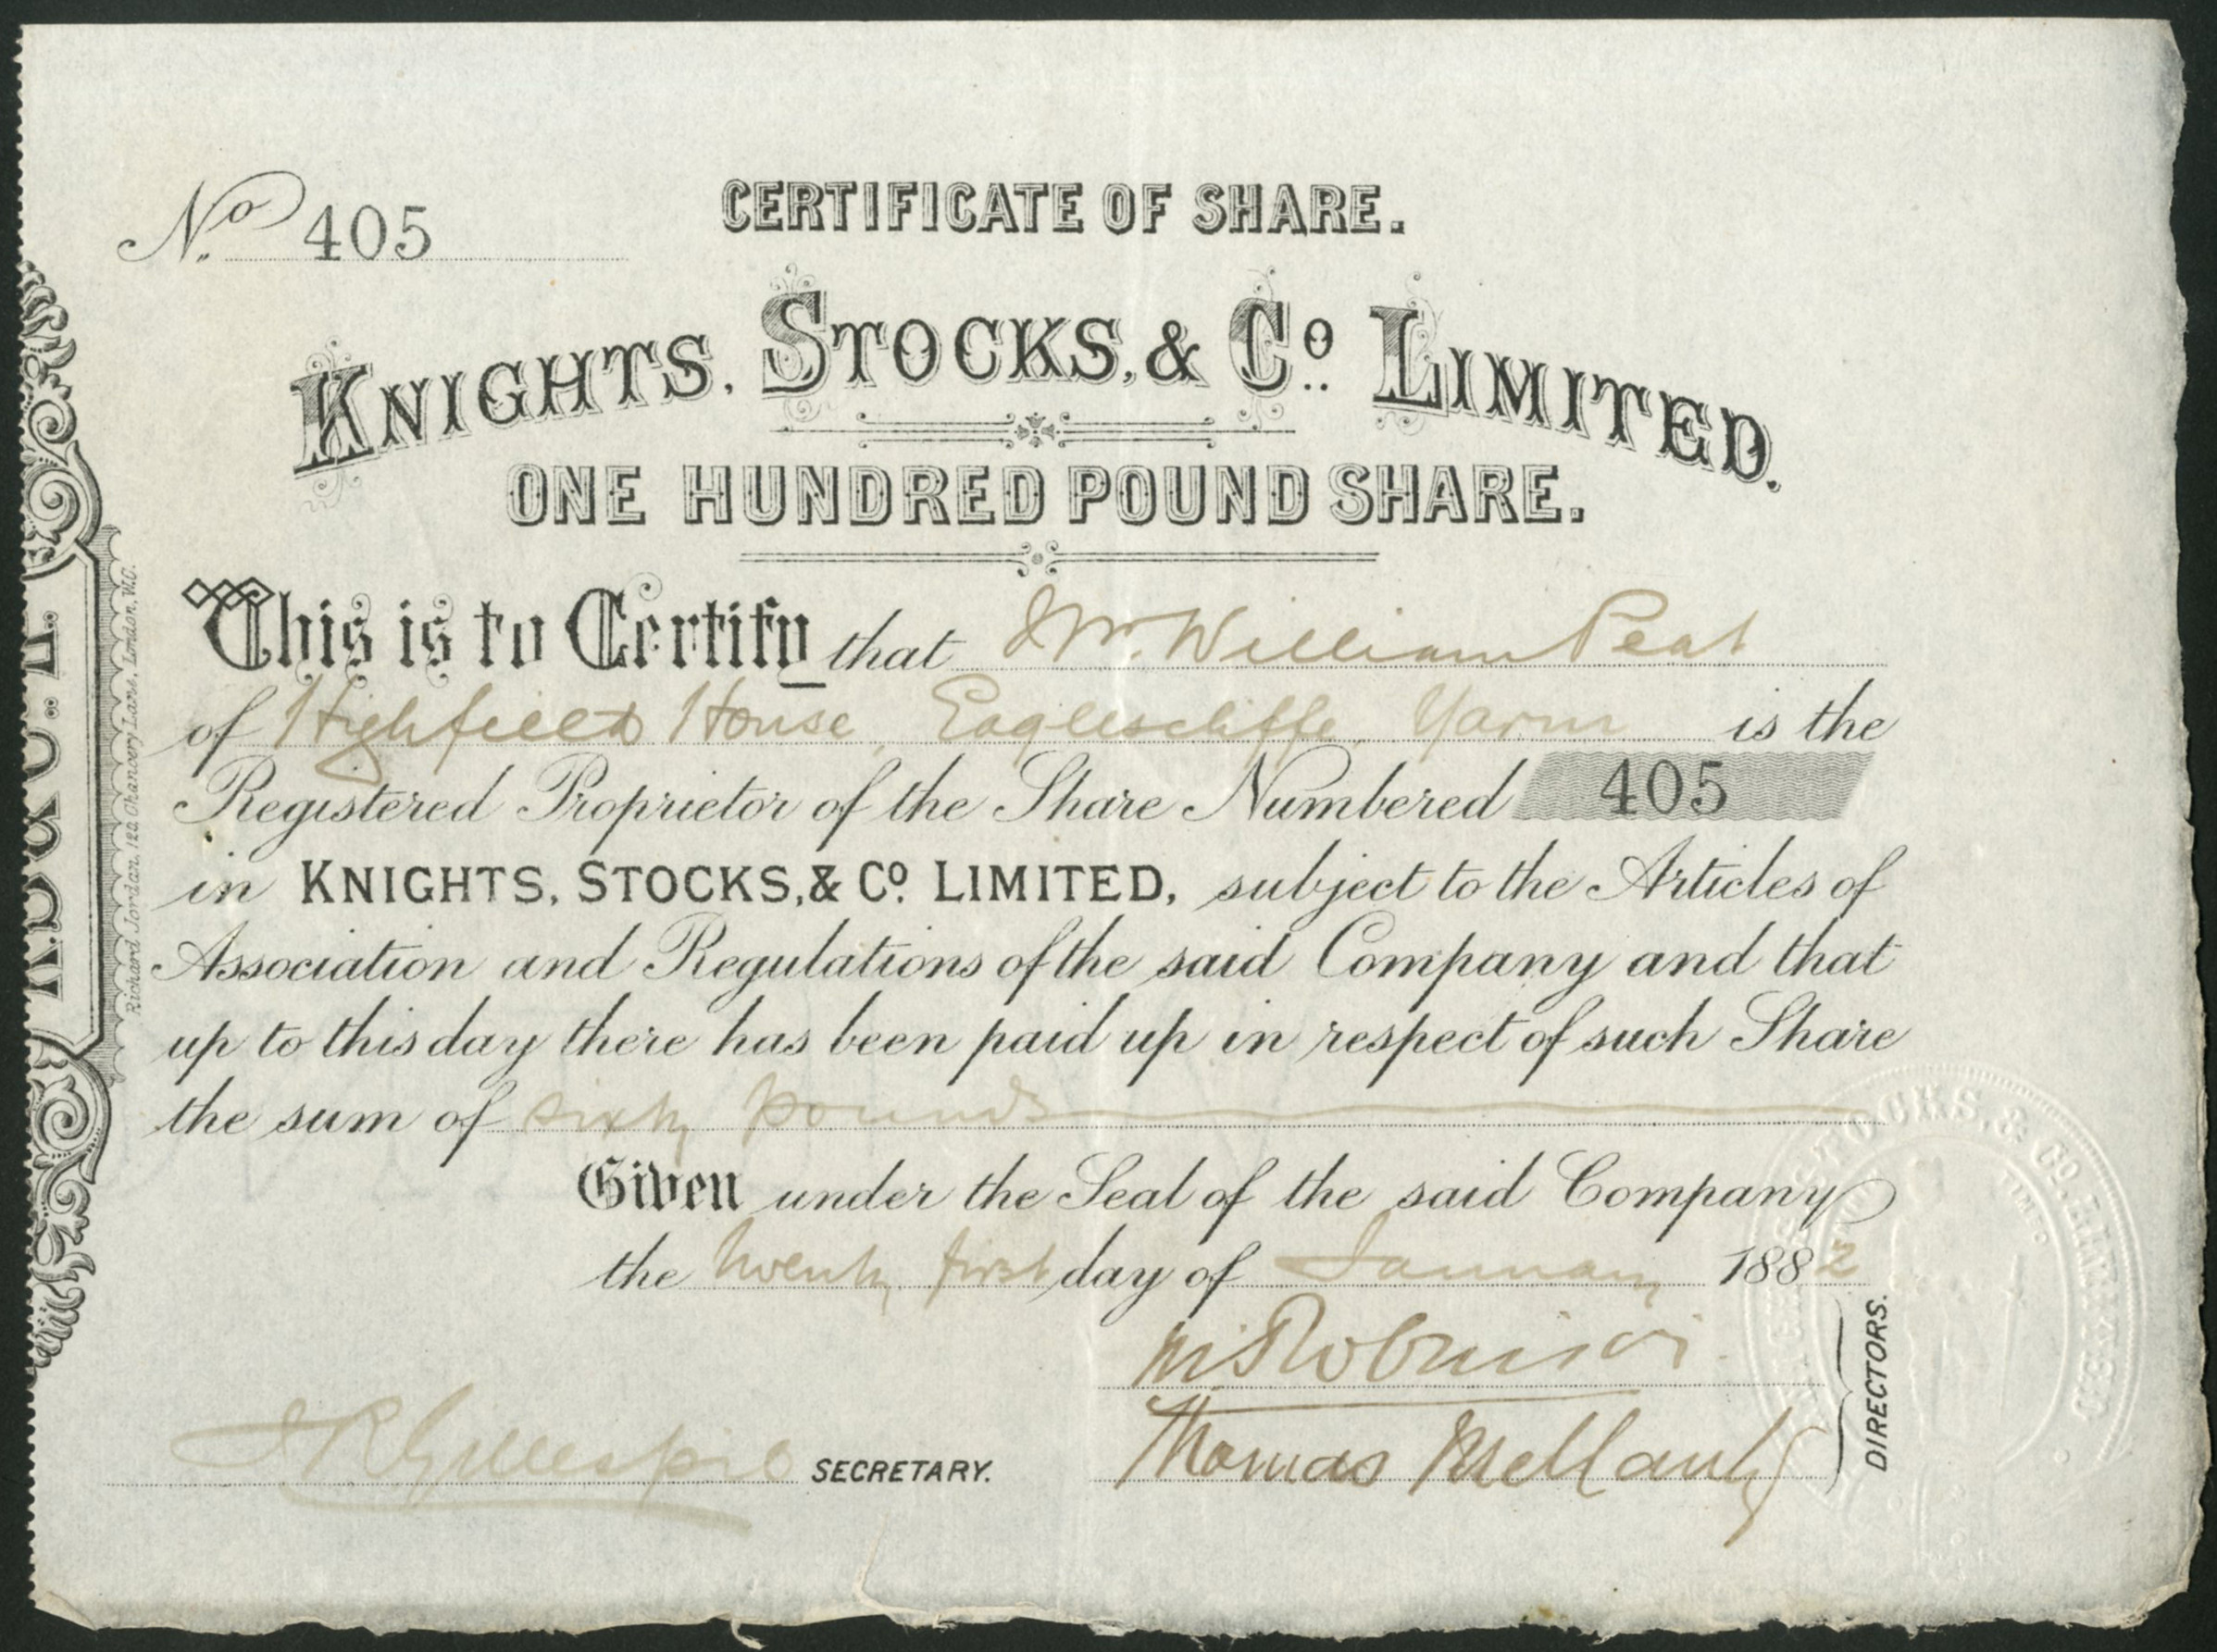 No. 405
CERTIFICATE OF SHARE.
KNIGHTS, STOCKS, & Co. LIMITED.
ONE HUNDRED POUND SHARE.
This is to Certify that Mr. William Peat
of Highfield House, Eaglescliffe, Yarm is the
Registered Proprietor of the Share Numbered 405
in KNIGHTS, STOCKS, & Co. LIMITED, subject to the Articles of
Association and Regulations of the said Company and that
up to this day there has been paid up in respect of such Share
the sum of sixty pounds
Given under the Seal of the said Company
the twenty first day of January 1882
Robinson
Thomas
DIRECTORS.
J R Gillespie SECRETARY.
Richard Jordan, 122 Chancery Lane, London, W.C.
STOCKS, & CO. LIMITED